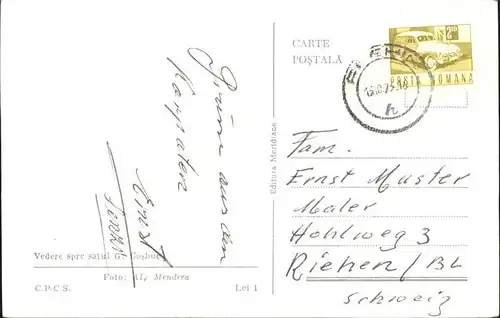 Grüsse aus den
Karpaten
Ernst
Vedere spre satul G. Coşbuc
Foto: Al. Mendrea
C.P.C.S.
Lei 1
Editura Meridiane
CARTE
POŞTALĂ
POSTA ROMANA
Fam.
Ernst Muster
Maler
Hohlweg 3
Riehen / BL
Schweiz